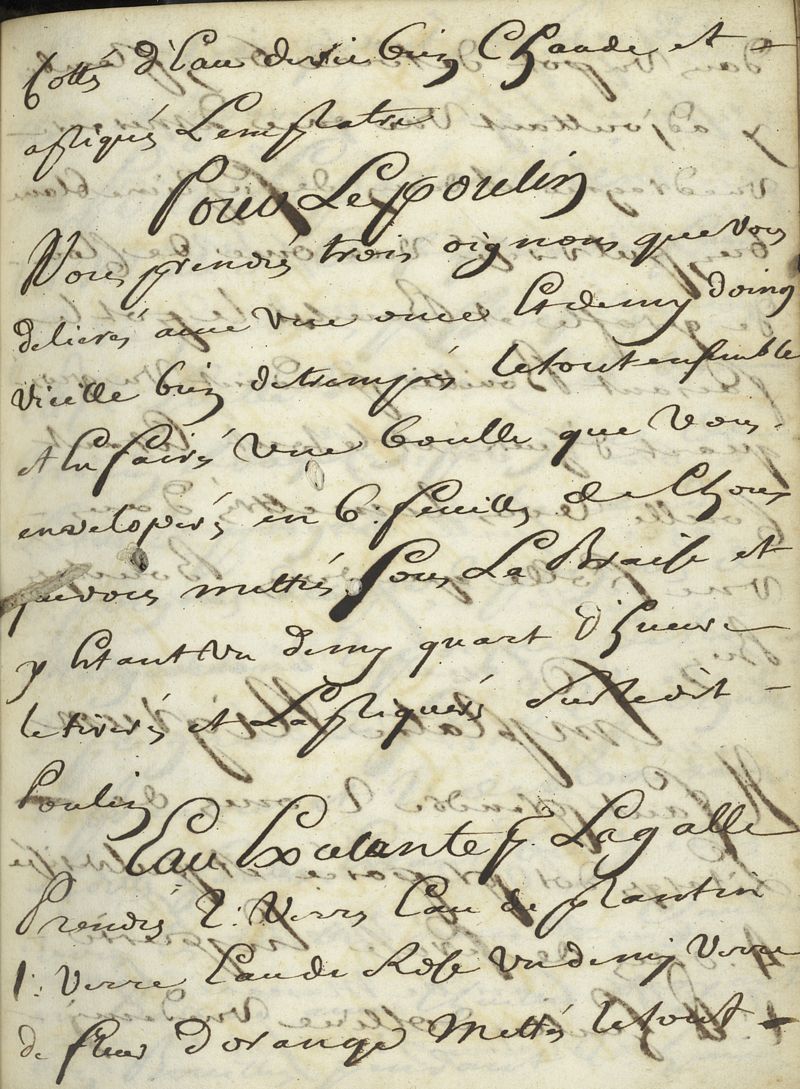 frottés d'Eau devie bien Chaude et
apliqués Lemplatre
Pour Le poulin
Vous prendrés trois oignons que vous
delierés avec une once Et demy doing
vieille bien detrampés letout ensemble
et En fairés une boulle que vous
enveloperés en 6. feuilles de Chous
que vous mettrés Sous La Braise et
y Etant un demy quart d'Hueure
letirerés et Lapliquerés Surledit
Poulin
Eau Exelante p. Lagalle
Prendés 2: Verres Eau de plantin
1: verre Eaude Rose undemy verre
de fleur dorange Mettés letout